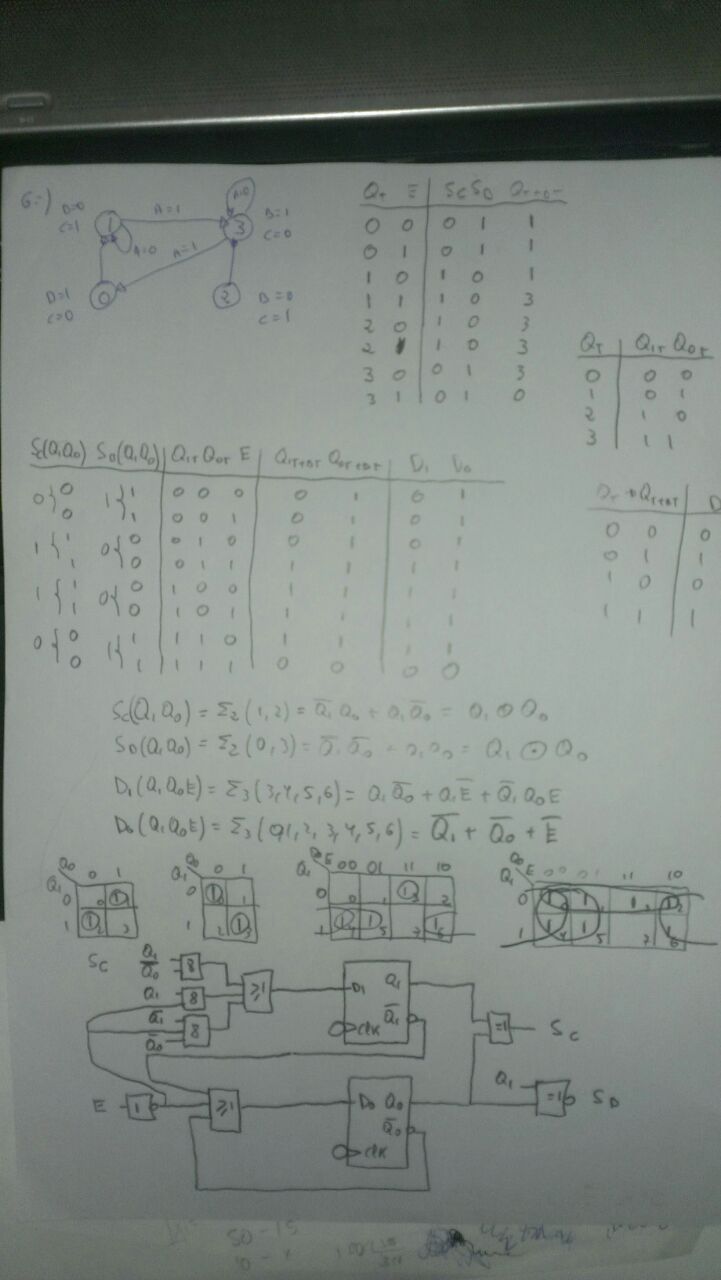 6=)
D=0
C=1
1
A=1
A=0
3
D=1
C=0
A=0
A=1
D=1
C=0
0
2
D=0
C=1
Qt E | Sc SD Qt+Δt
0 0 0 1 1
0 1 0 1 1
1 0 1 0 1
1 1 1 0 3
2 0 1 0 3
2 1 1 0 3
3 0 0 1 3
3 1 0 1 0
Qt | Q1t Q0t
0 0 0
1 0 1
2 1 0
3 1 1
Sc(Q1Q0) SD(Q1Q0) | Q1t Q0t E | Q1t+Δt Q0t+Δt | D1 D0
0{0 1{1 0 0 0 0 1 0 1
0 1 0 0 1 0 1 0 1
1{1 0{0 0 1 0 0 1 0 1
1 0 0 1 1 1 1 1 1
1{1 0{0 1 0 0 1 1 1 1
1 0 1 0 1 1 1 1 1
0{0 1{1 1 1 0 1 1 1 1
0 1 1 1 1 0 0 0 0
Qt+Δt | D
0 0 0
0 1 1
1 0 0
1 1 1
Sc(Q1Q0) = Σ2(1,2) = Q̅1Q0 + Q1Q̅0 = Q1⊕Q0
SD(Q1Q0) = Σ2(0,3) = Q̅1Q̅0 + Q1Q0 = Q1 ⊙ Q0
D1(Q1Q0E) = Σ3(3,4,5,6) = Q1Q̅0 + Q1E̅ + Q̅1Q0E
D0(Q1Q0E) = Σ3(0,1,2,3,4,5,6) = Q̅1 + Q̅0 + E̅
Q0 Q1 0 1
0 0 1
1 1 2 3
Q0 Q1 0 1
0 1 1
1 2 1 3
Q0E Q1 00 01 11 10
0 0 1 1 3 2
1 1 4 1 5 7 1 6
Q0 E Q1 00 01 11 10
0 1 1 1 3 1 2
1 1 4 1 5 7 1 6
Sc
Q1
Q̅0
&
Q1
&
Q̅1
Q̅0
&
≥1
D1 Q1
Q̅1
CLK
=1
Sc
E
1
≥1
D0 Q0
Q̅0
CLK
Q1
=1
SD